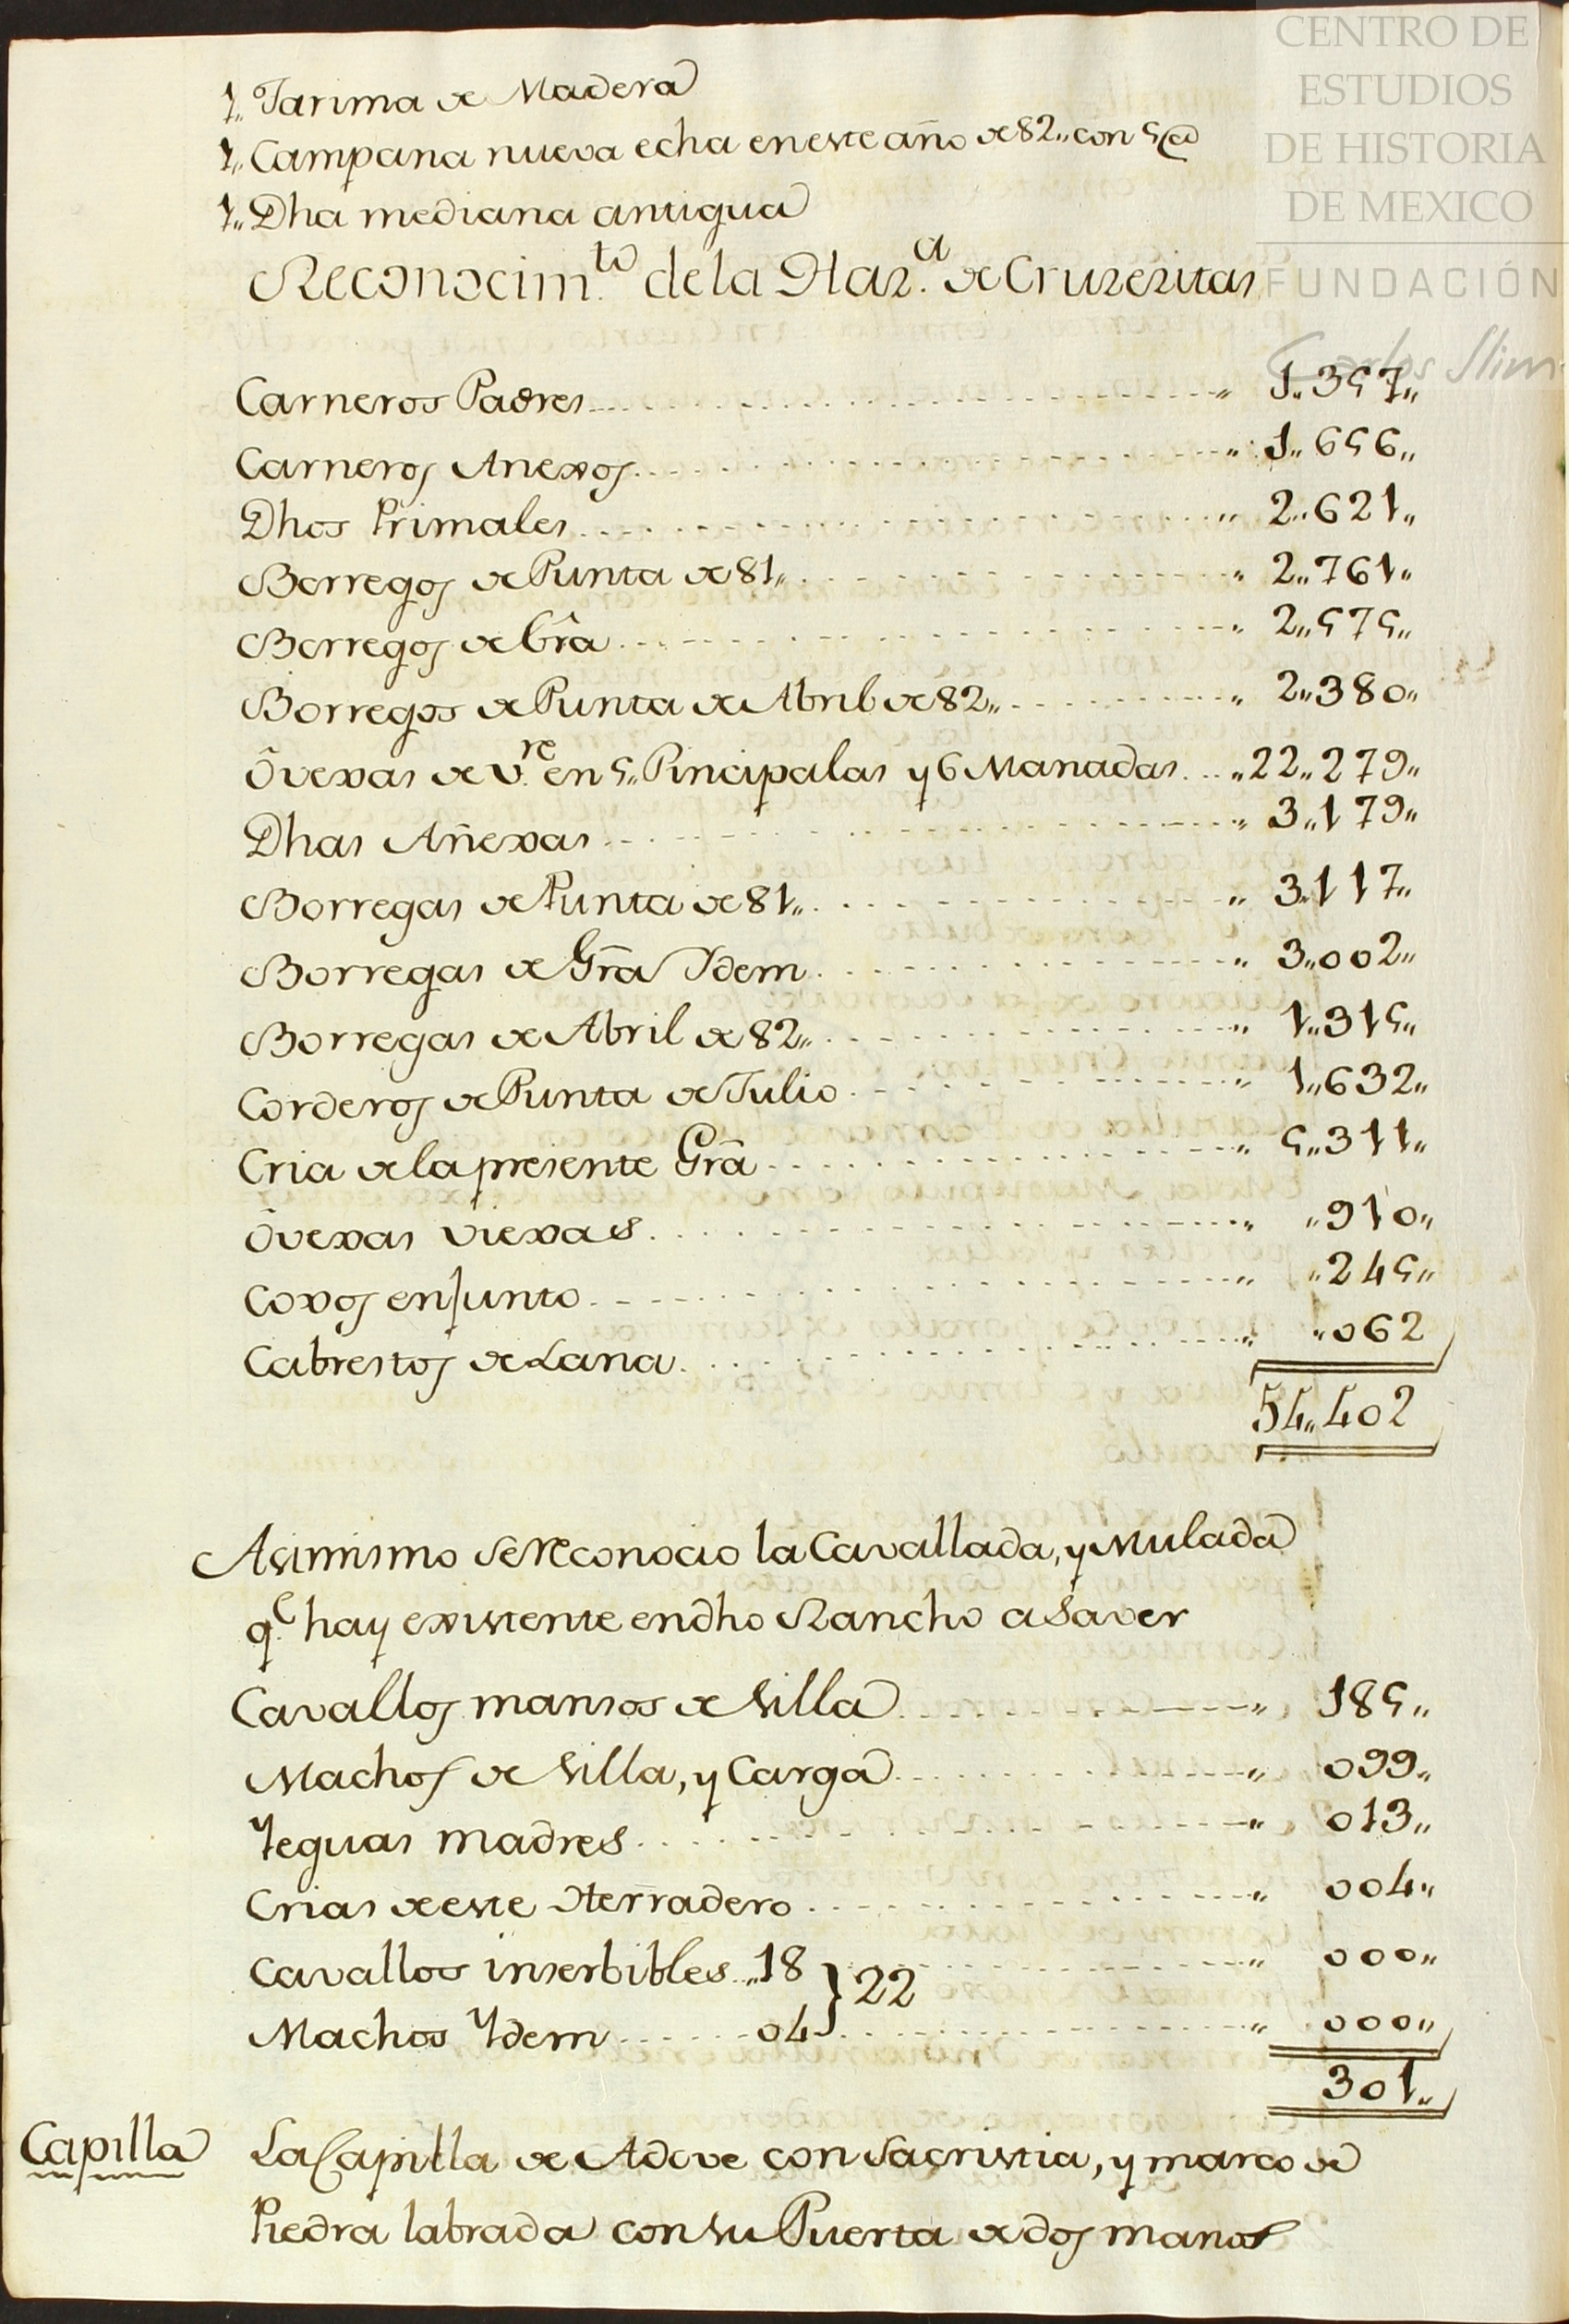 CENTRO DE
ESTUDIOS
DE HISTORIA
DE MEXICO
FUNDACIÓN
Carlos Slim
1,, Tarima de Madera
1,, Campana nueva echa en este año de 82,, con 5@
1,, Dha mediana antigua
Reconocim.to de la Haz.a de Cruzezitas
Carneros Padres ,, 1,,357,,
Carneros Anexos ,, 1,,656,,
Dhos Primales ,, 2,,621,,
Borregos de Punta de 81,, ,, 2,,761,,
Borregos de Grã ,, 2,,575,,
Borregos de Punta de Abril de 82,, ,, 2,,380,,
Ovexas de V.re en 5,, Pincipalas y 6 Manadas ,, 22,,279,,
Dhas Añexas ,, 3,,179,,
Borregas de Punta de 81,, ,, 3,,117,,
Borregas de Grã Idem ,, 3,,002,,
Borregas de Abril de 82,, ,, 1,,315,,
Corderos de Punta de Julio ,, 1,,632,,
Cria de la presente Grã ,, 5,,311,,
Ovexas viexas ,, ,,910,,
Coxos enjunto ,, ,,245,,
Cabrestos de Lana ,, ,,062
54,,402
Asimismo se reconocio la Cavallada, y Mulada
q.e hay existente en dho Rancho a Saver
Cavallos mansos de Silla ,, 185,,
Machos de Silla, y Carga ,, 099,,
Yeguas madres ,, 013,,
Crias de este Herradero ,, 004,,
Cavallos inserbibles ,,18 } 22 ,, 000,,
Machos Ydem 04 ,, 000,,
301,,
Capilla La Capilla de Adove con Sacristia, y marco de
Piedra labrada con su Puerta de dos manos